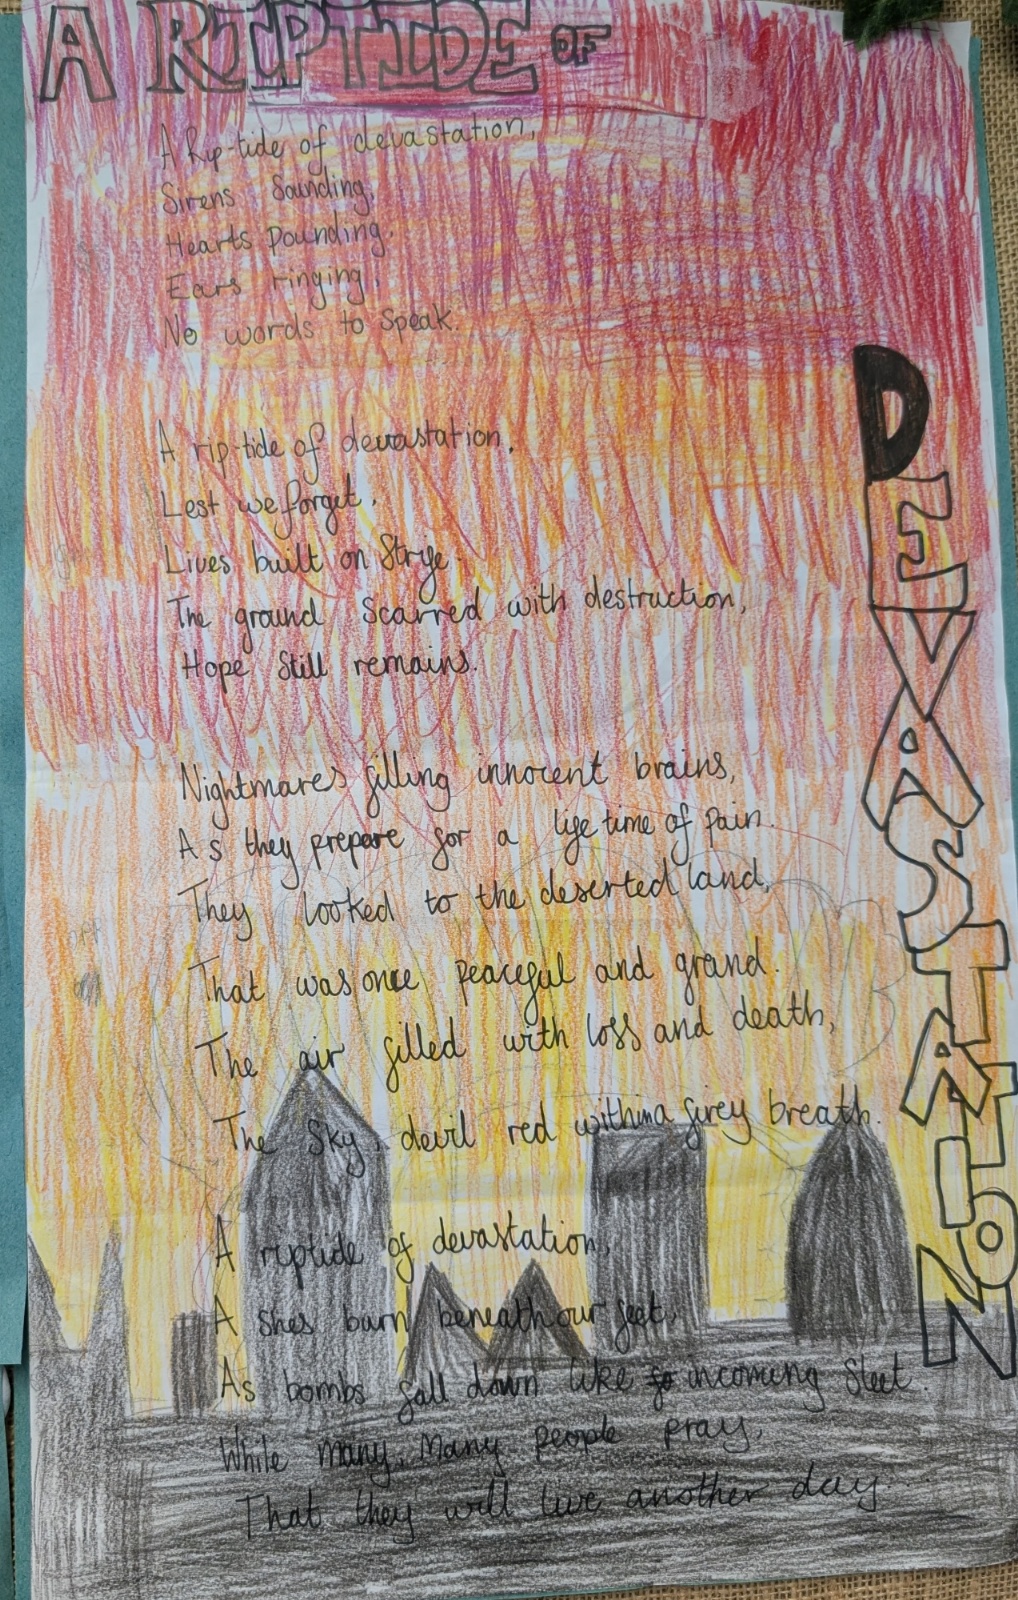 A RIPTIDE OF
DEVASTATION
A Rip-tide of devastation,
Sirens Sounding,
Hearts Pounding,
Ears ringing,
No words to Speak.
A rip-tide of devastation,
Lest we forget,
Lives built on Strife.
The ground Scarred with destruction,
Hope Still remains.
Nightmares filling innocent brains,
As they prepare for a life time of pain.
They looked to the deserted land,
That was once peaceful and grand.
The air filled with loss and death,
The Sky, devil red with a firey breath.
A riptide of devastation,
Ashes burn beneath our feet,
As bombs fall down like incoming Sleet.
While many, Many people pray,
That they will live another day..